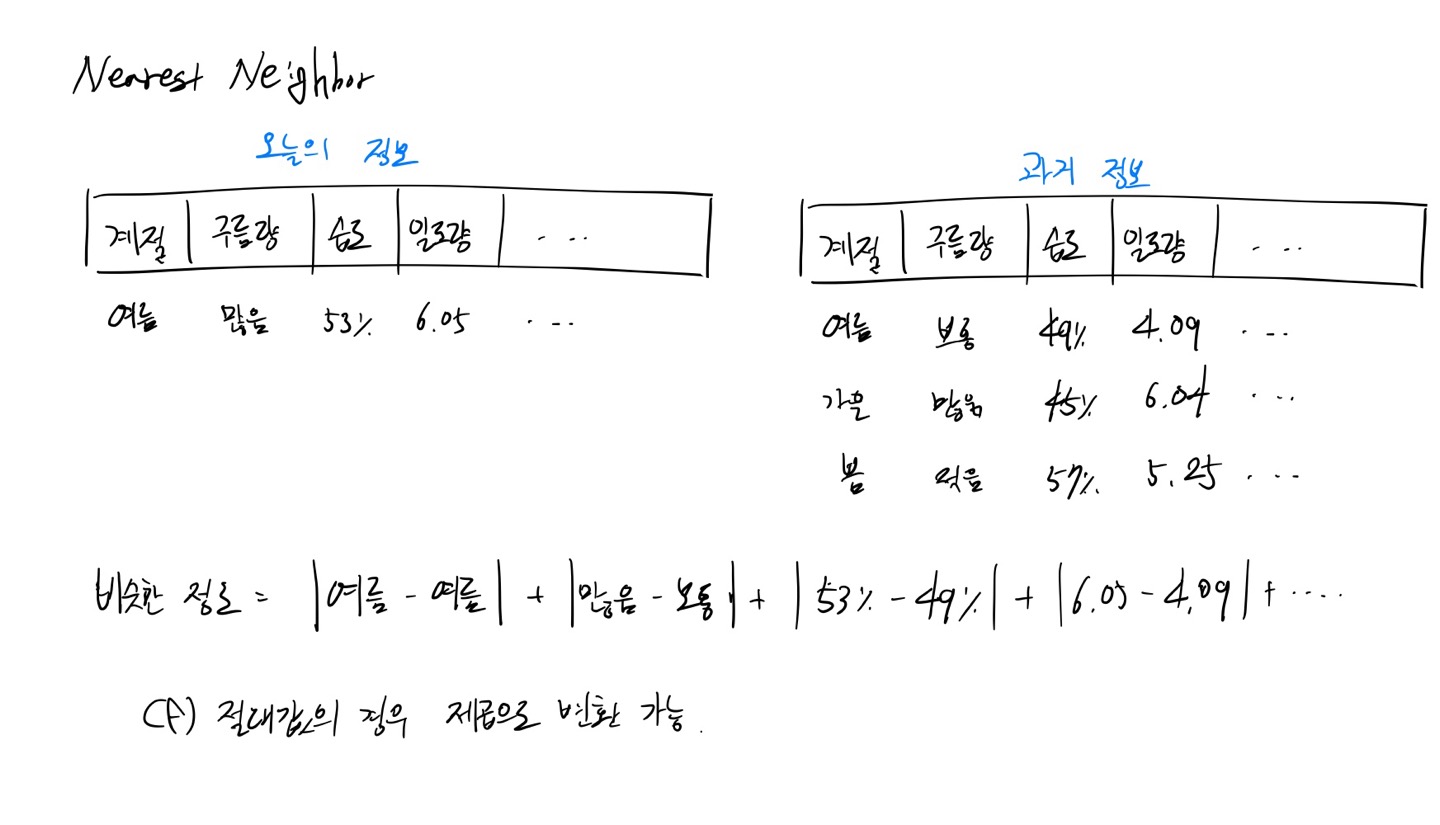 Nearest Neighbor
오늘의 정보
계절 구름량 습도 일조량 ....
여름 많음 53% 6.05 ....
과거 정보
계절 구름량 습도 일조량 ....
여름 보통 49% 4.09 ....
가을 많음 45% 6.04 ....
봄 적음 57% 5.25 ....
비슷한 정도 = |여름 - 여름| + |많음 - 보통| + |53% - 49%| + |6.05 - 4.09| + ....
cf) 절대값의 경우 제곱으로 변환 가능.